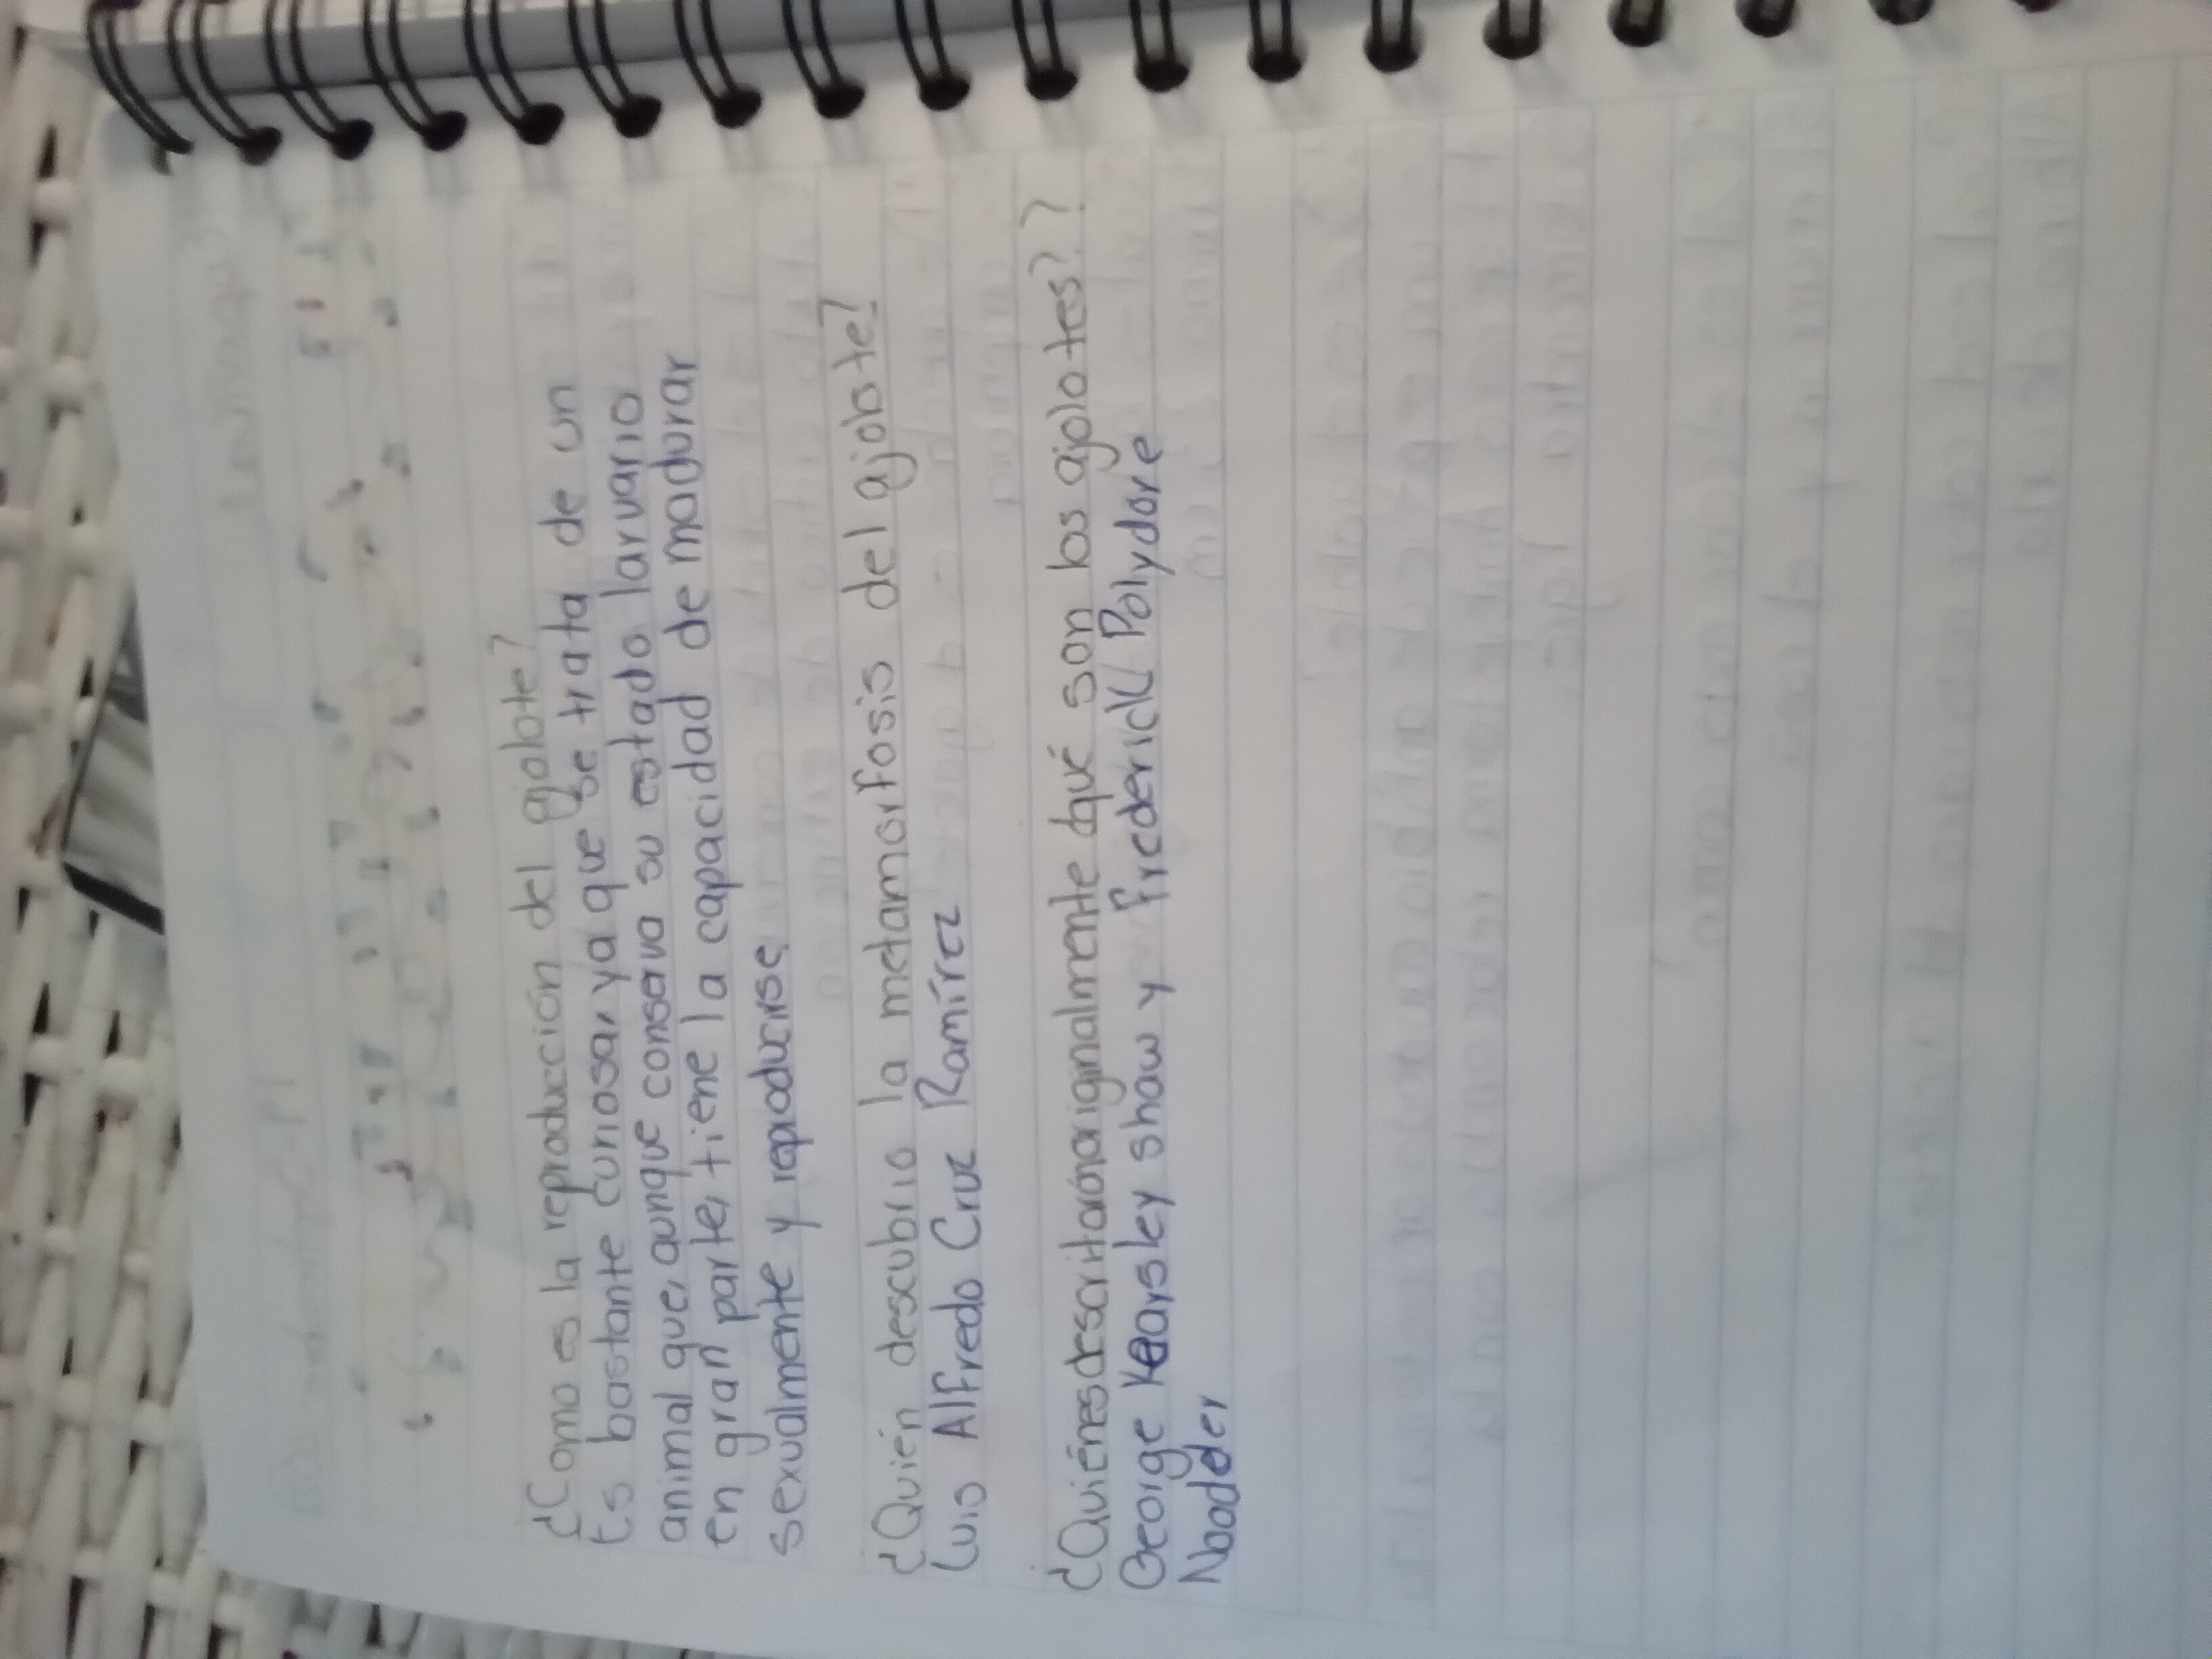 ¿Como es la reproducción del ajolote?
Es bastante curiosa, ya que se trata de un
animal que, aunque conserva su estado larvario
en gran parte, tiene la capacidad de madurar
sexualmente y reproducirse
¿Quién descubrio la metamorfosis del ajolote?
Luis Alfredo Cruz Ramírez
¿Quiénes descritarón originalmente ¿qué son los ajolotes??
George Kearsley show y Frederick Polydore
Nodder